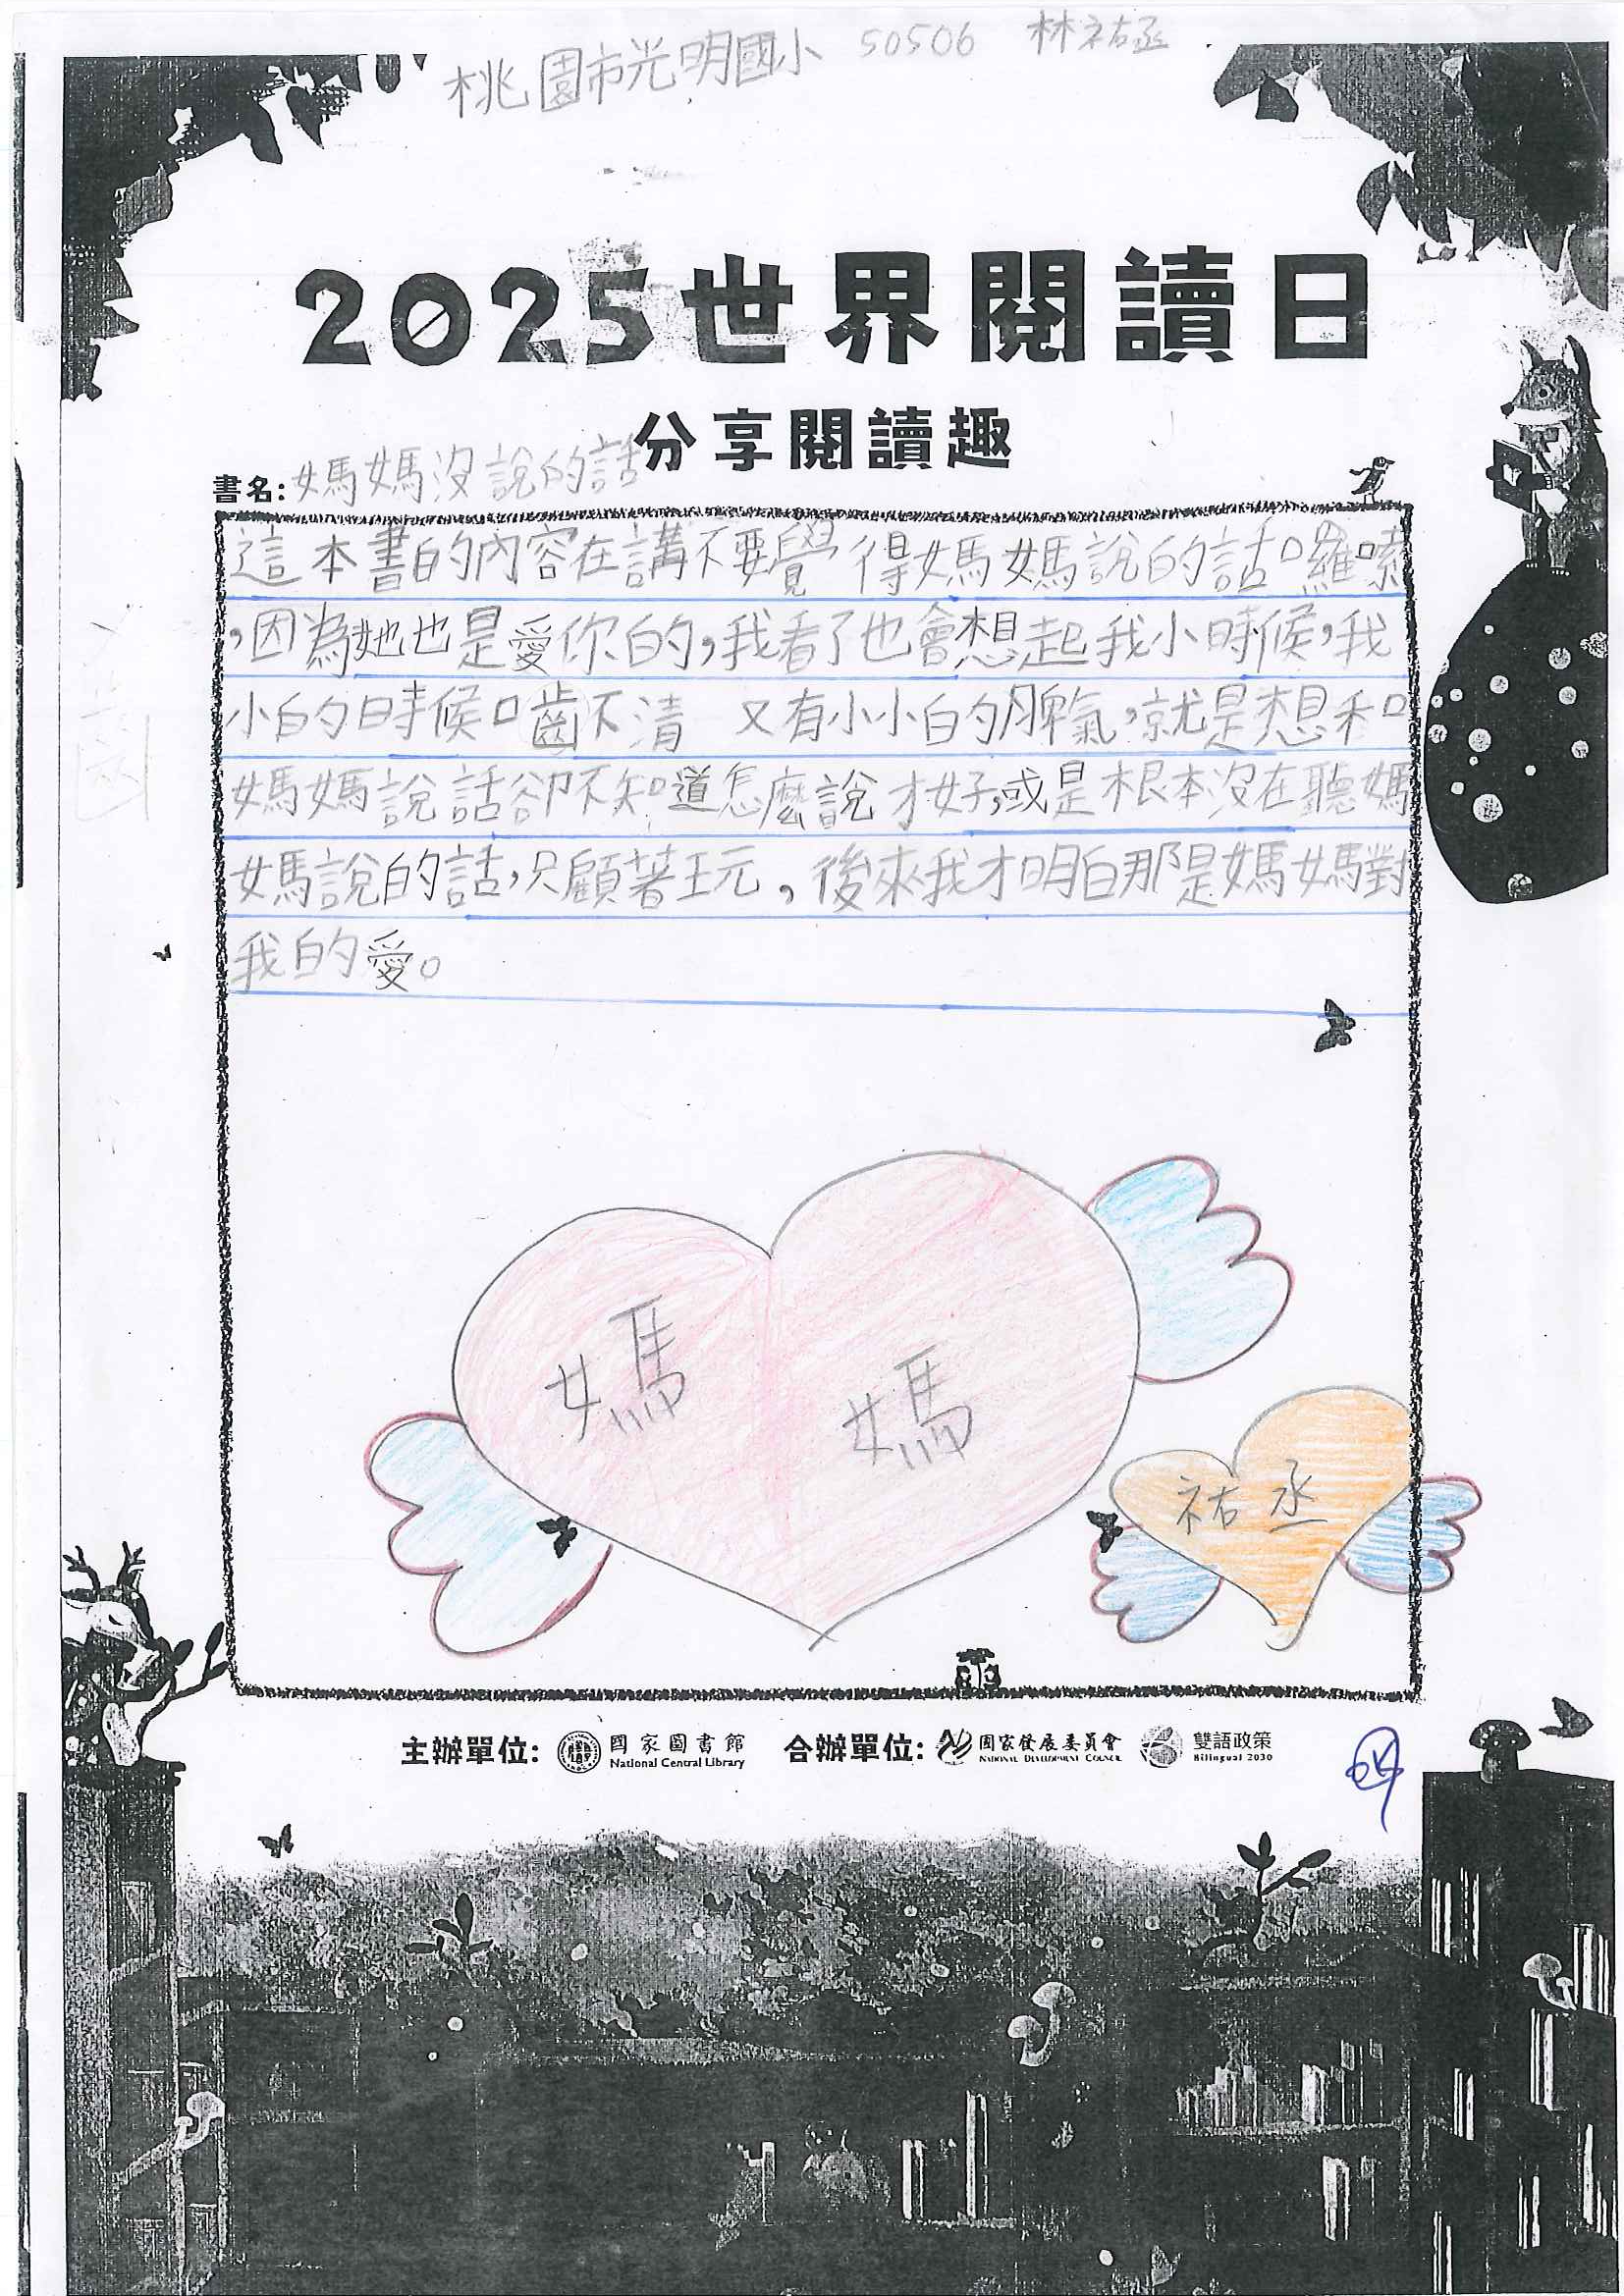 桃園市光明國小 50506 林祐丞
2025世界閱讀日
分享閱讀趣
書名:媽媽沒說的話
這本書的內容在講不要覺得媽媽說的話囉嗦
,因為她也是愛你的,我看了也會想起我小時候,我
小的時候口齒不清 又有小小的脾氣,就是想和
媽媽說話卻不知道怎麼說才好,或是根本沒在聽媽
媽說的話,只顧著玩,後來我才明白那是媽媽對
我的愛。
媽媽
祐丞
主辦單位: 國家圖書館 合辦單位: 國家發展委員會 雙語政策
National Central Library NATIONAL DEVELOPMENT COUNCIL Bilingual 2030